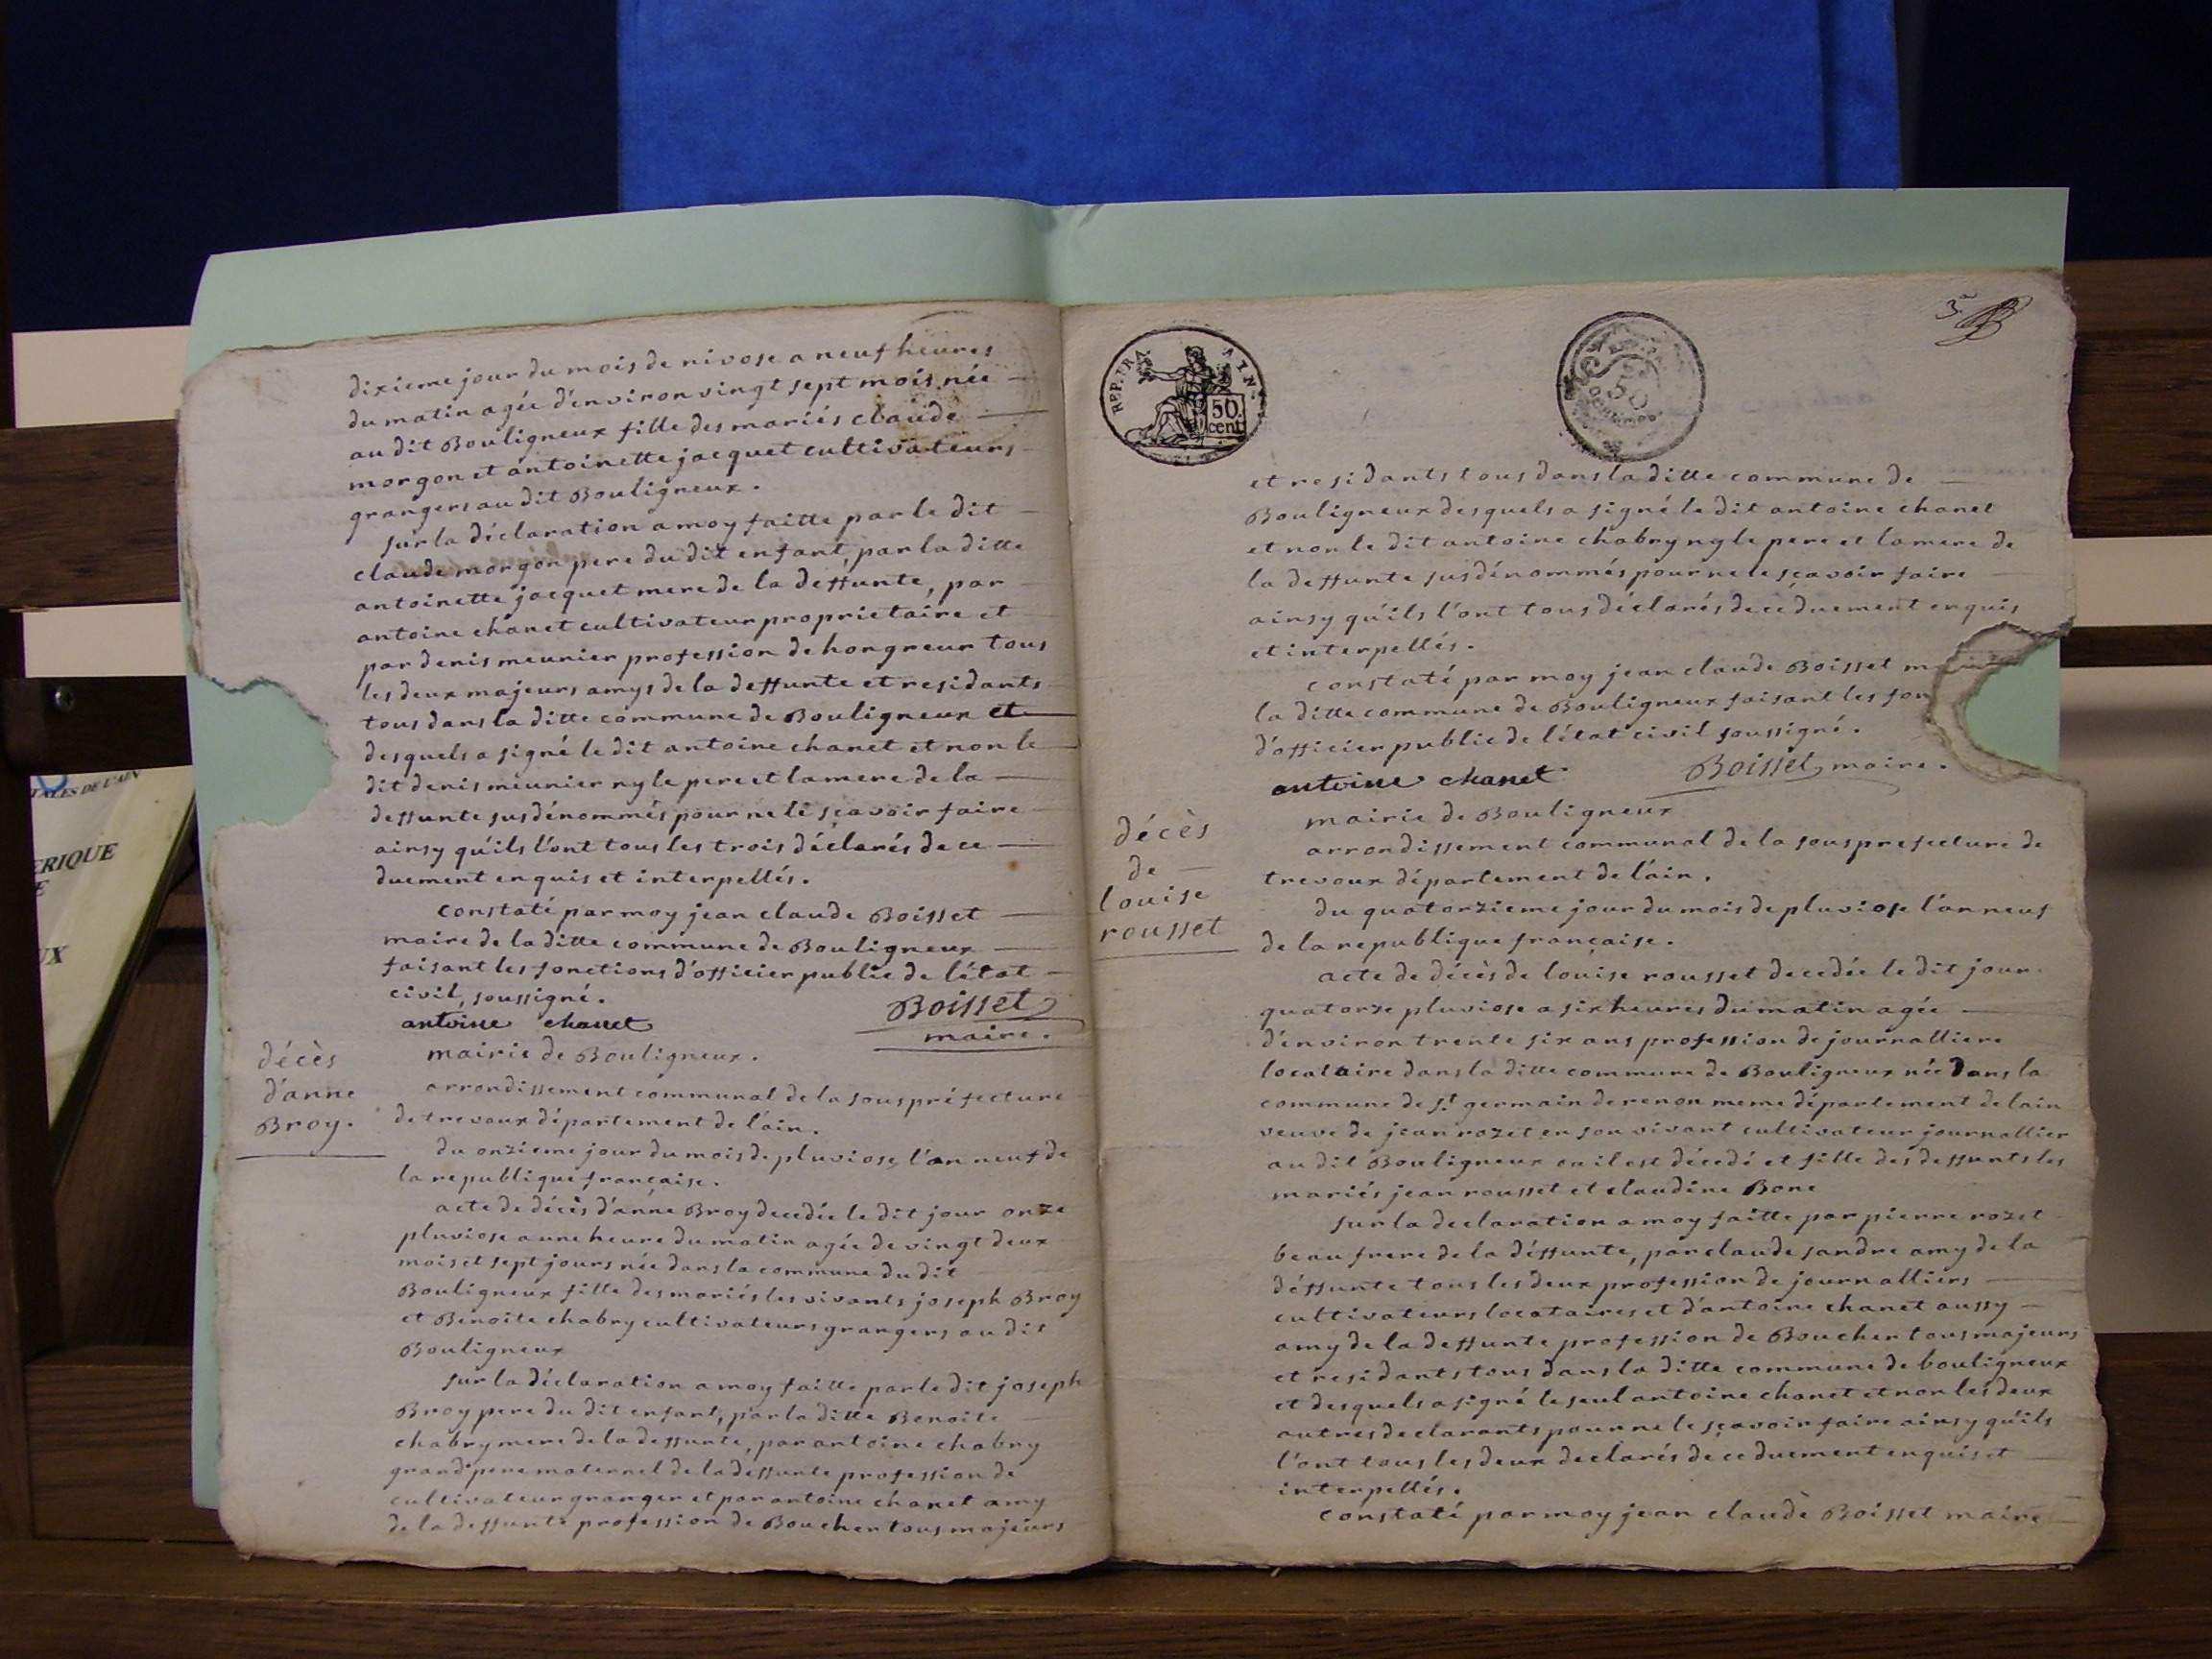 dixieme jour du mois de nivose a neuf heures
du matin agée d'environ vingt sept mois née
au dit Bouligneux fille des mariés claude
morgon et antoinette jacquet cultivateurs
grangers au dit Bouligneux.
sur la déclaration a moy faitte par le dit
claude morgon pere du dit enfant, par la ditte
antoinette jacquet mere de la deffunte, par
antoine chanet cultivateur proprietaire et
par denis meunier profession de hongreur tous
les deux majeurs amys de la deffunte et residants
tous dans la ditte commune de Bouligneux et
desquels a signé le dit antoine chanet et non le
dit denis meunier ny le pere et la mere de la
deffunte susdénommés pour ne le sçavoir faire
ainsy qu'ils l'ont tous les trois déclarés de ce
duement enquis et interpellés.
constaté par moy jean claude Boisset
maire de la ditte commune de Bouligneux
faisant les fonctions d'officier public de l'état
civil, soussigné.
antoine chanet
Boisset
maire.
décès
d'anne
Broy.
mairie de Bouligneux.
arrondissement communal de la souspréfecture
de trevoux département de l'ain.
du onzieme jour du mois de pluviose, l'an neuf de
la republique française.
acte de décès d'anne Broy decedée le dit jour onze
pluviose a une heure du matin agée de vingt deux
mois et sept jours née dans la commune du dit
Bouligneux fille des mariés les vivants joseph Broy
et Benoite chabry cultivateurs grangers au dit
Bouligneux
sur la déclaration a moy faitte par le dit joseph
Broy pere du dit enfant, par la ditte Benoite
chabry mere de la deffunte, par antoine chabry
grand'pere maternel de la deffunte profession de
cultivateur granger et par antoine chanet amy
de la deffunte profession de Boucher tous majeurs
REP. FRA
50
cent
50
3
et residants tous dans la ditte commune de
Bouligneux desquels a signé le dit antoine chanet
et non le dit antoine chabry ny le pere et la mere de
la deffunte susdénommés pour ne le sçavoir faire
ainsy qu'ils l'ont tous déclarés de ce duement enquis
et interpellés.
constaté par moy jean claude Boisset
la ditte commune de Bouligneux faisant les fon
d'officier public de l'état civil soussigné.
antoine chanet
Boisset maire.
décès
de
louise
rousset
mairie de Bouligneux
arrondissement communal de la sousprefecture de
trevoux département de l'ain.
du quatorzieme jour du mois de pluviose l'an neuf
de la republique française.
acte de décès de louise rousset decedée le dit jour
quatorze pluviose a six heures du matin agée
d'environ trente six ans profession de journalliere
locataire dans la ditte commune de Bouligneux née dans la
commune de s.t germain de renon meme département de lain
veuve de jean rozet en son vivant cultivateur journallier
au dit Bouligneux ou il est décedé et fille des deffunts les
mariés jean rousset et claudine Bone
sur la declaration a moy faitte par pierre rozet
beau frere de la déffunte, par claude sandre amy de la
déffunte tous les deux profession de journalliers
cultivateurs locataires et d'antoine chanet aussy
amy de la deffunte profession de Boucher tous majeurs
et residants tous dans la ditte commune de bouligneux
et desquels a signé le seul antoine chanet et non les deux
autres declarants pour ne le sçavoir faire ainsy qu'ils
l'ont tous les deux declarés de ce duement enquis et
interpellés.
constaté par moy jean claude Boisset maire
ERIQUE